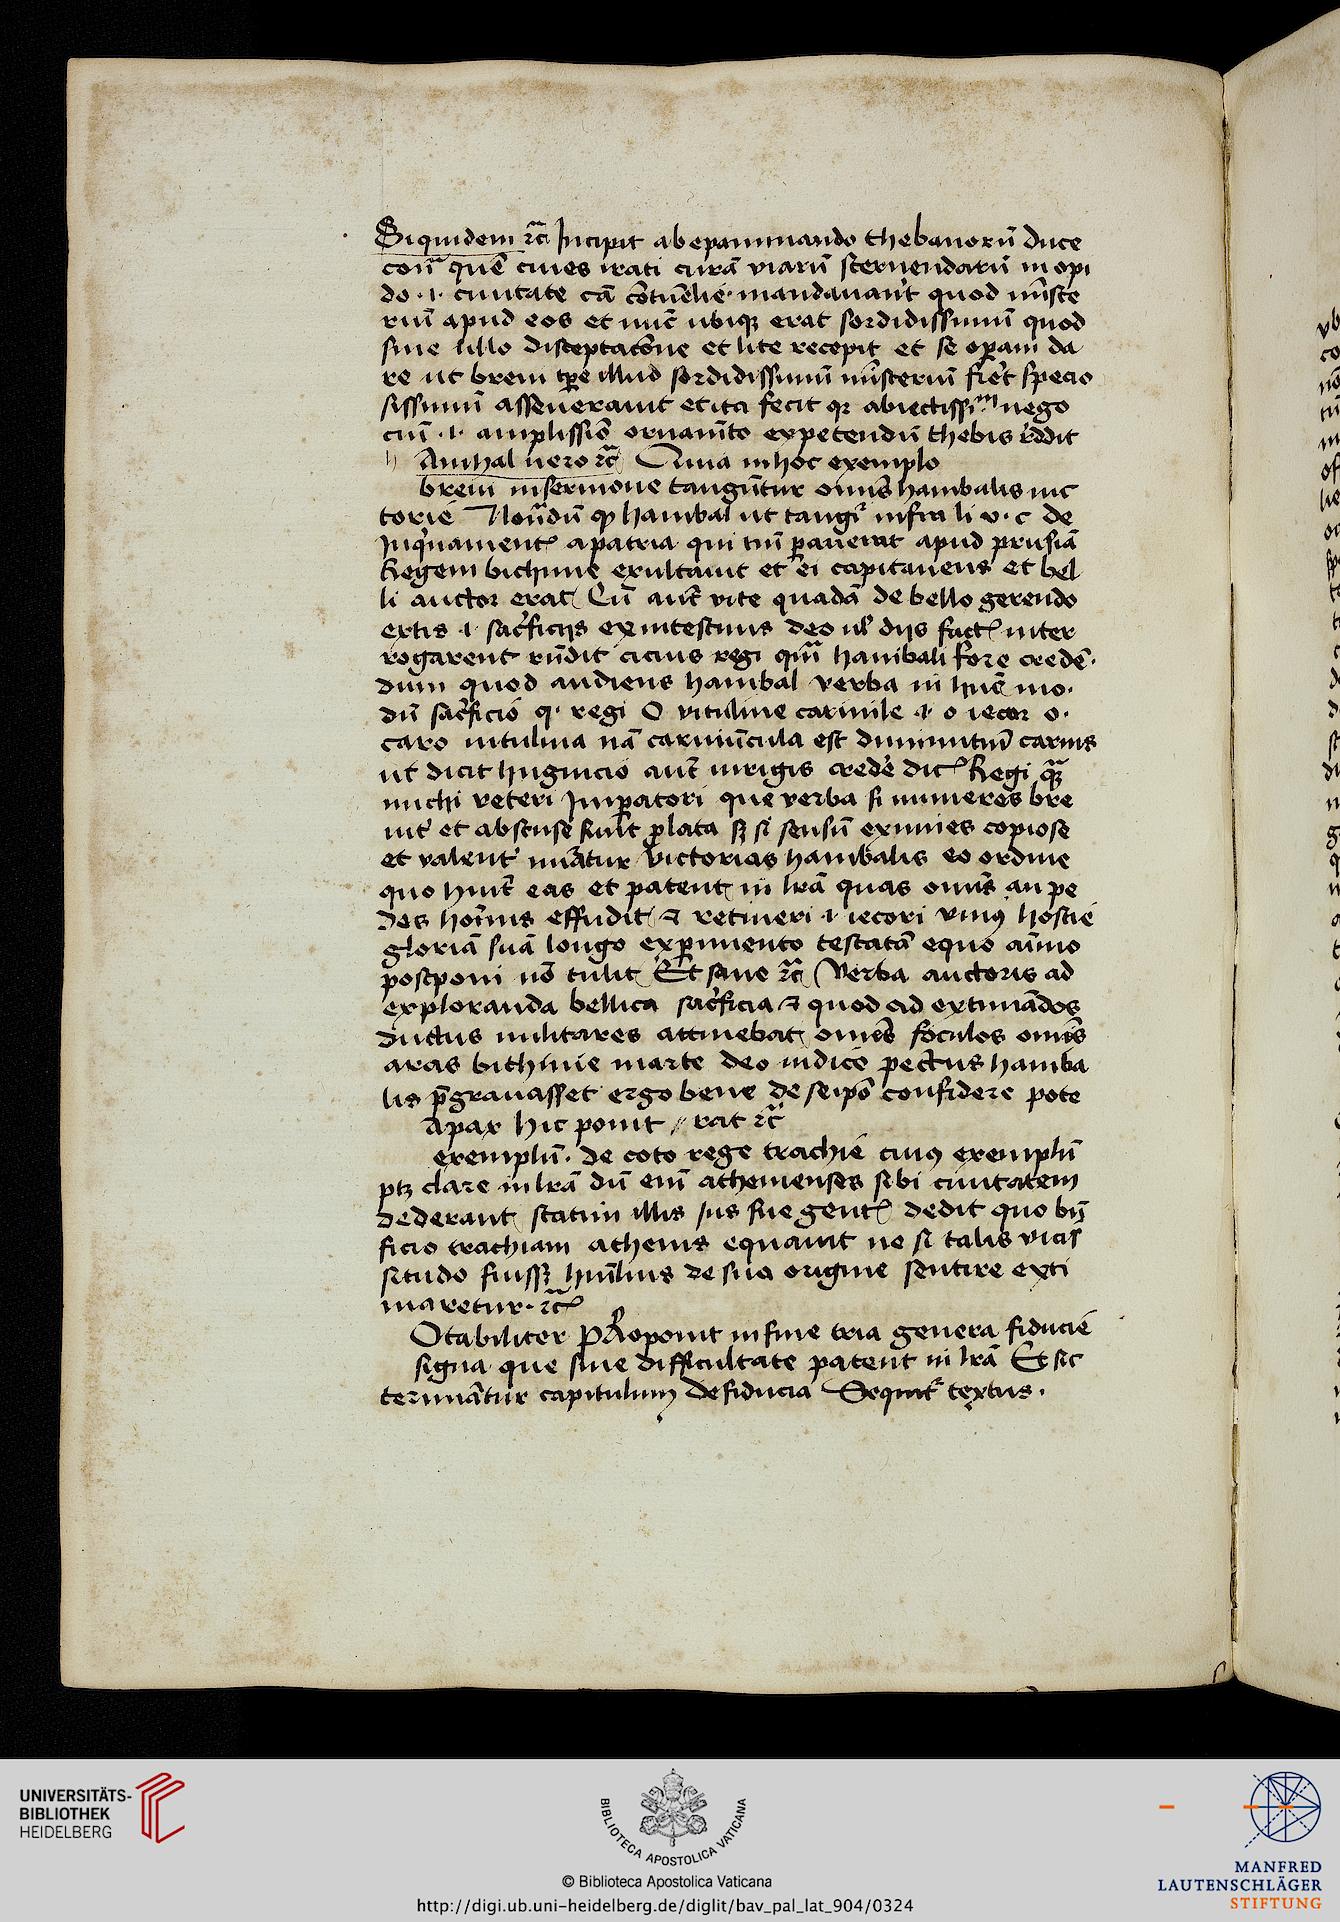 Siquidem rc̄ Incipit ab epaminando thebanorū duce
con̄ quē ciues irati curā viarū sternendarū in opi
do .i. ciuitate cā cōtumelie mandauan̄t quod mīste
riū apud eos et nūc ubiqȝ erat sordidissimū quod
sine ullo disceptatōne et lite recepit et se oꝑam da
re ut breui tp̄e illud sordidissimū mīsteriū fiēt specio
sissimū asseuerauit et ita fecit qȝ abiectissīm nego
ciū .i. amplissiō ornamēto expetendū thebis rēddit
h Anibal uero rc̄ Quia in hoc exemplo
breui in sermone tangūtur om̄s hanibalis uic
torie Notādū ꝙ hanibal ut tangiʳ infra li v. c de
a patria qui tūc apud prusiā
Regem bithinie exultauit et ei capitaneus et bel
li auctor erat Cū aūt vite quadā de bello gerendo
extis .i. sac̄ficijs ex intestinis deo ul̄ dijs fact̄ inter
rogarent rn̄dit cicius regi qm̄ hanibali fore credē
dum quod audiens hanibal verba in hūc mo.
dū sac̄ficio q. regi O vituline carinile .i. o iecor o.
caro uitulina nā carniūcula est diminutiū carnis
ut dicit huguicio aūt mrigis credē dic̄ Regi quā
michi veteri Imꝑatori que verba si numeres bre
uit̄ et abscuse sūlt ꝓlata sȝ si sensū eximies copiose
et valent̄ nūatur victorias hanibalis eo ordine
quo hūit eas et patent in lrā quas om̄s an pe
des hoīnis effudit ⁊ retineri .i. iecori vniꝰ hostie
gloriā suā longo exꝑimento testatā equo aīmo
postponi nō tulit Et sane rc̄ Verba auctoris ad
exploranda bellica sac̄ficia ⁊ quod ad extimādos
ductus militares attinebat om̄s foculos om̄s
aras bithinie marte deo iudice pectus haniba
lis p̄grauasset ergo bene de seipō confidere pote
Apax hic ponit // rat rc̄
exemplū. de coto rege trachie cuiꝰ exemplū
ptȝ clare in lrā dū enī athenienses sibi ciuitatem
dederant statim illis Ius sue gent̄ dedit quo bn̄
ficio trachiam athenis equauit ne si talis vicis
situdo fuissȝ hūilius de sua origine sentire exti
maretur. rc̄
Otabiliter proponit in fine tria genera fiducie
signa que sine difficultate patent in lrā Et sic
terminātur capitulum de fiducia Sequit̄ textus.
UNIVERSITÄTS-
BIBLIOTHEK
HEIDELBERG
BIBLIOTECA APOSTOLICA VATICANA
© Biblioteca Apostolica Vaticana
http://digi.ub.uni-heidelberg.de/diglit/bav_pal_lat_904/0324
MANFRED
LAUTENSCHLÄGER
STIFTUNG